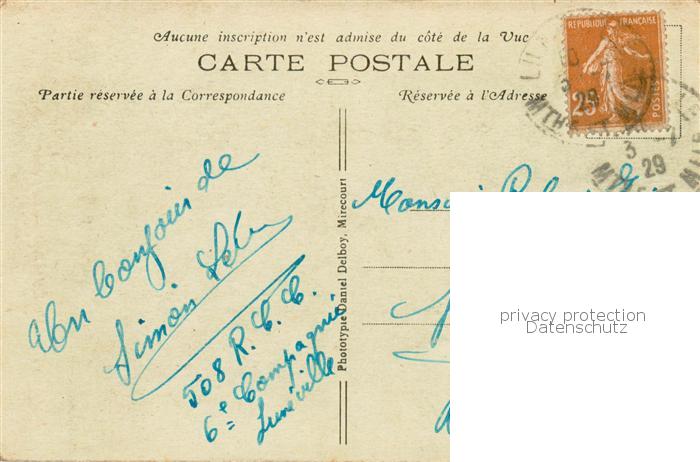 Aucune inscription n'est admise du côté de la Vue
CARTE POSTALE
Partie réservée à la Correspondance
Réservée à l'Adresse
REPUBLIQUE FRANÇAISE
25
POSTES
3
29
Un bonjour de
Simon
508 R.C.C.
6e Compagnie
Lunéville
Phototypie Daniel Delboy, Mirecourt
privacy protection
Datenschutz